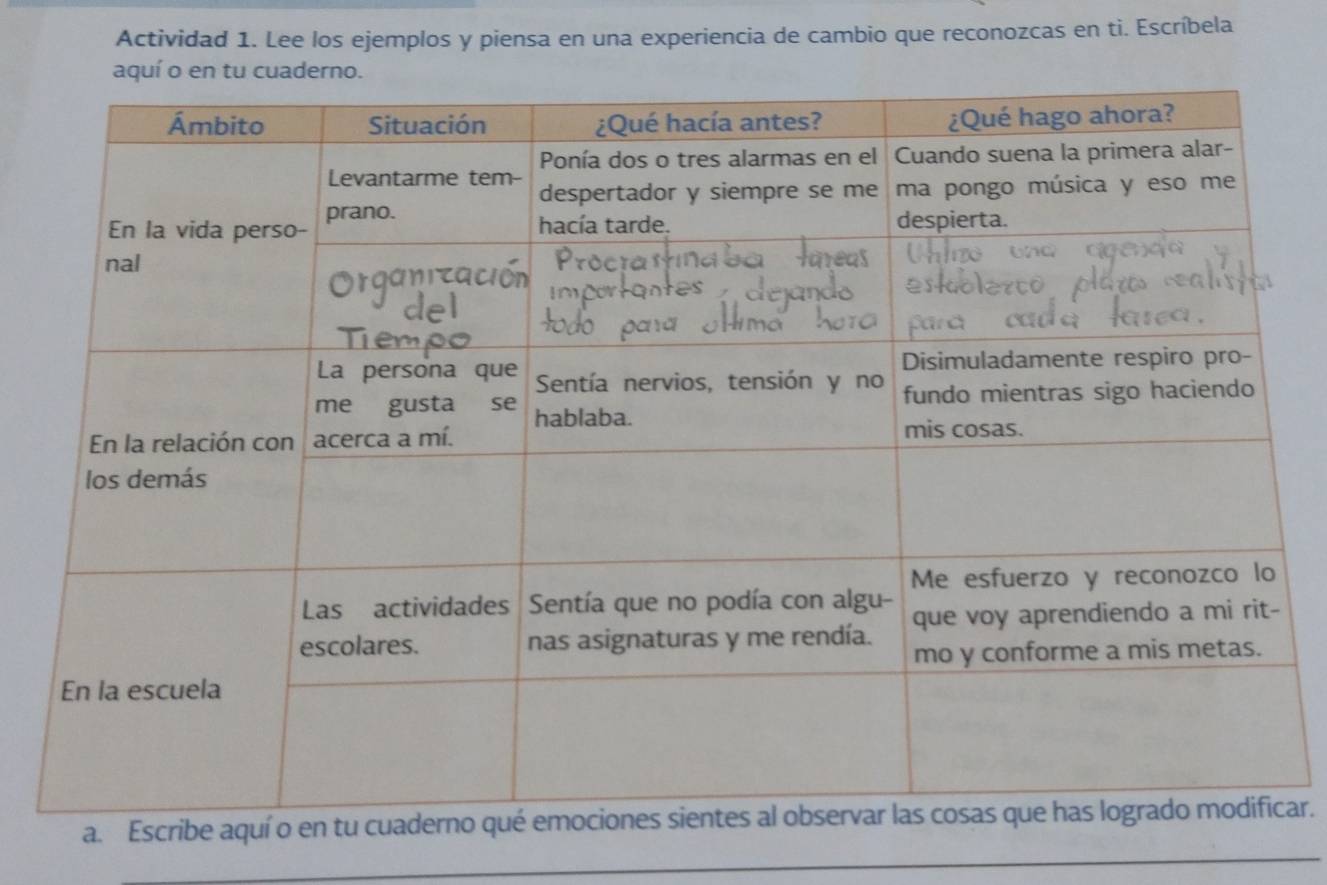 Actividad 1. Lee los ejemplos y piensa en una experiencia de cambio que reconozcas en ti. Escríbela
aquí o en tu cuaderno.
Ámbito
Situación
¿Qué hacía antes?
¿Qué hago ahora?
En la vida perso-
nal
Levantarme tem-
prano.
Ponía dos o tres alarmas en el
despertador y siempre se me
hacía tarde.
Cuando suena la primera alar-
ma pongo música y eso me
despierta.
Organización
del
Tiempo
Procrastinaba tareas
importantes, dejando
todo para ultima hora
Utilizo una agenda y
establezco plazos realistas
para cada tarea.
En la relación con
los demás
La persona que
me gusta se
acerca a mí.
Sentía nervios, tensión y no
hablaba.
Disimuladamente respiro pro-
fundo mientras sigo haciendo
mis cosas.
En la escuela
Las actividades
escolares.
Sentía que no podía con algu-
nas asignaturas y me rendía.
Me esfuerzo y reconozco lo
que voy aprendiendo a mi rit-
mo y conforme a mis metas.
a. Escribe aquí o en tu cuaderno qué emociones sientes al observar las cosas que has logrado modificar.